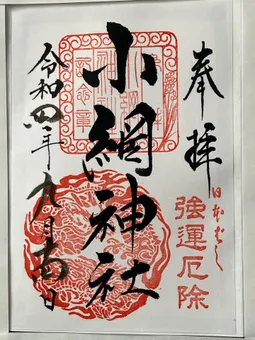 奉拝
日本ばし
強運厄除
小網神社
令和四年九月吉日